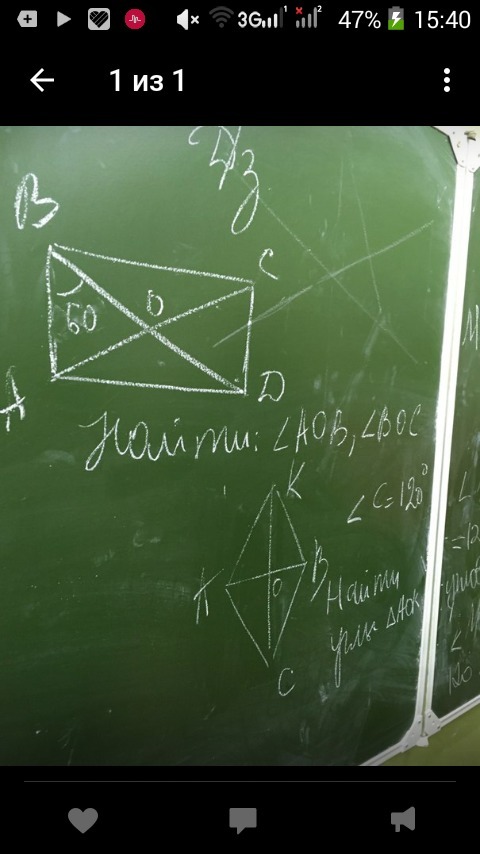 3G 1 2 47% 15:40
1 из 1
Д/з
B
C
60
O
A
D
Найти: ∠AOB, ∠BOC
K
∠C=120°
A
B
O
Найти
углы ΔAOK
C